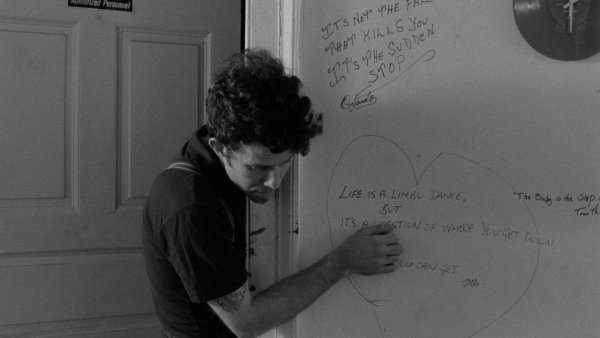 Authorized Personnel
IT'S NOT THE FALL
THAT KILLS YOU
IT'S THE SUDDEN
STOP
LIFE IS A LIMBO DANCE,
BUT
IT'S A QUESTION OF WHERE YOU GET DOWN
YOU CAN GET
"The Body is the